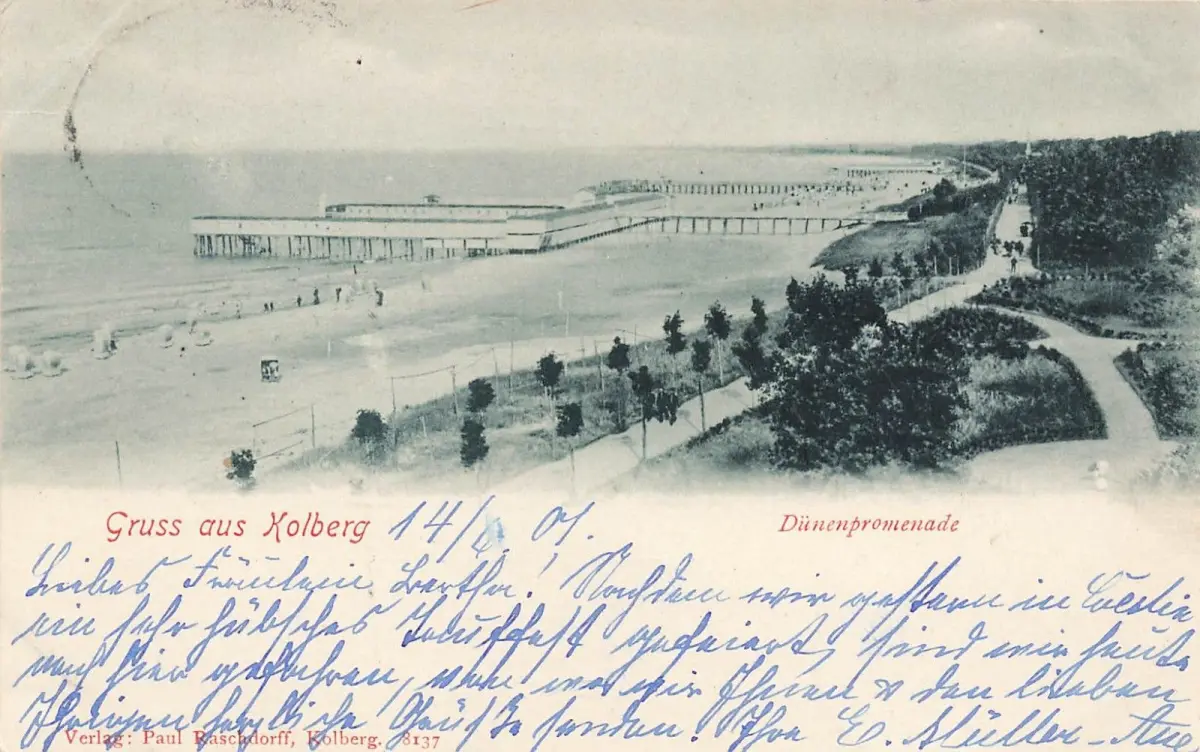 Gruss aus Kolberg 14/6. 01. Dünenpromenade
Liebes Fräulein Bertha! Nachdem wir gestern in Cöslin
ein sehr hübsches Tauffest gefeiert, sind wir heute
nach hier gefahren, von wo wir Ihnen & den lieben
Ihrigen herzliche Grüße senden. Ihre E. Müller-Aug
Verlag: Paul Raschdorff, Kolberg. 8137